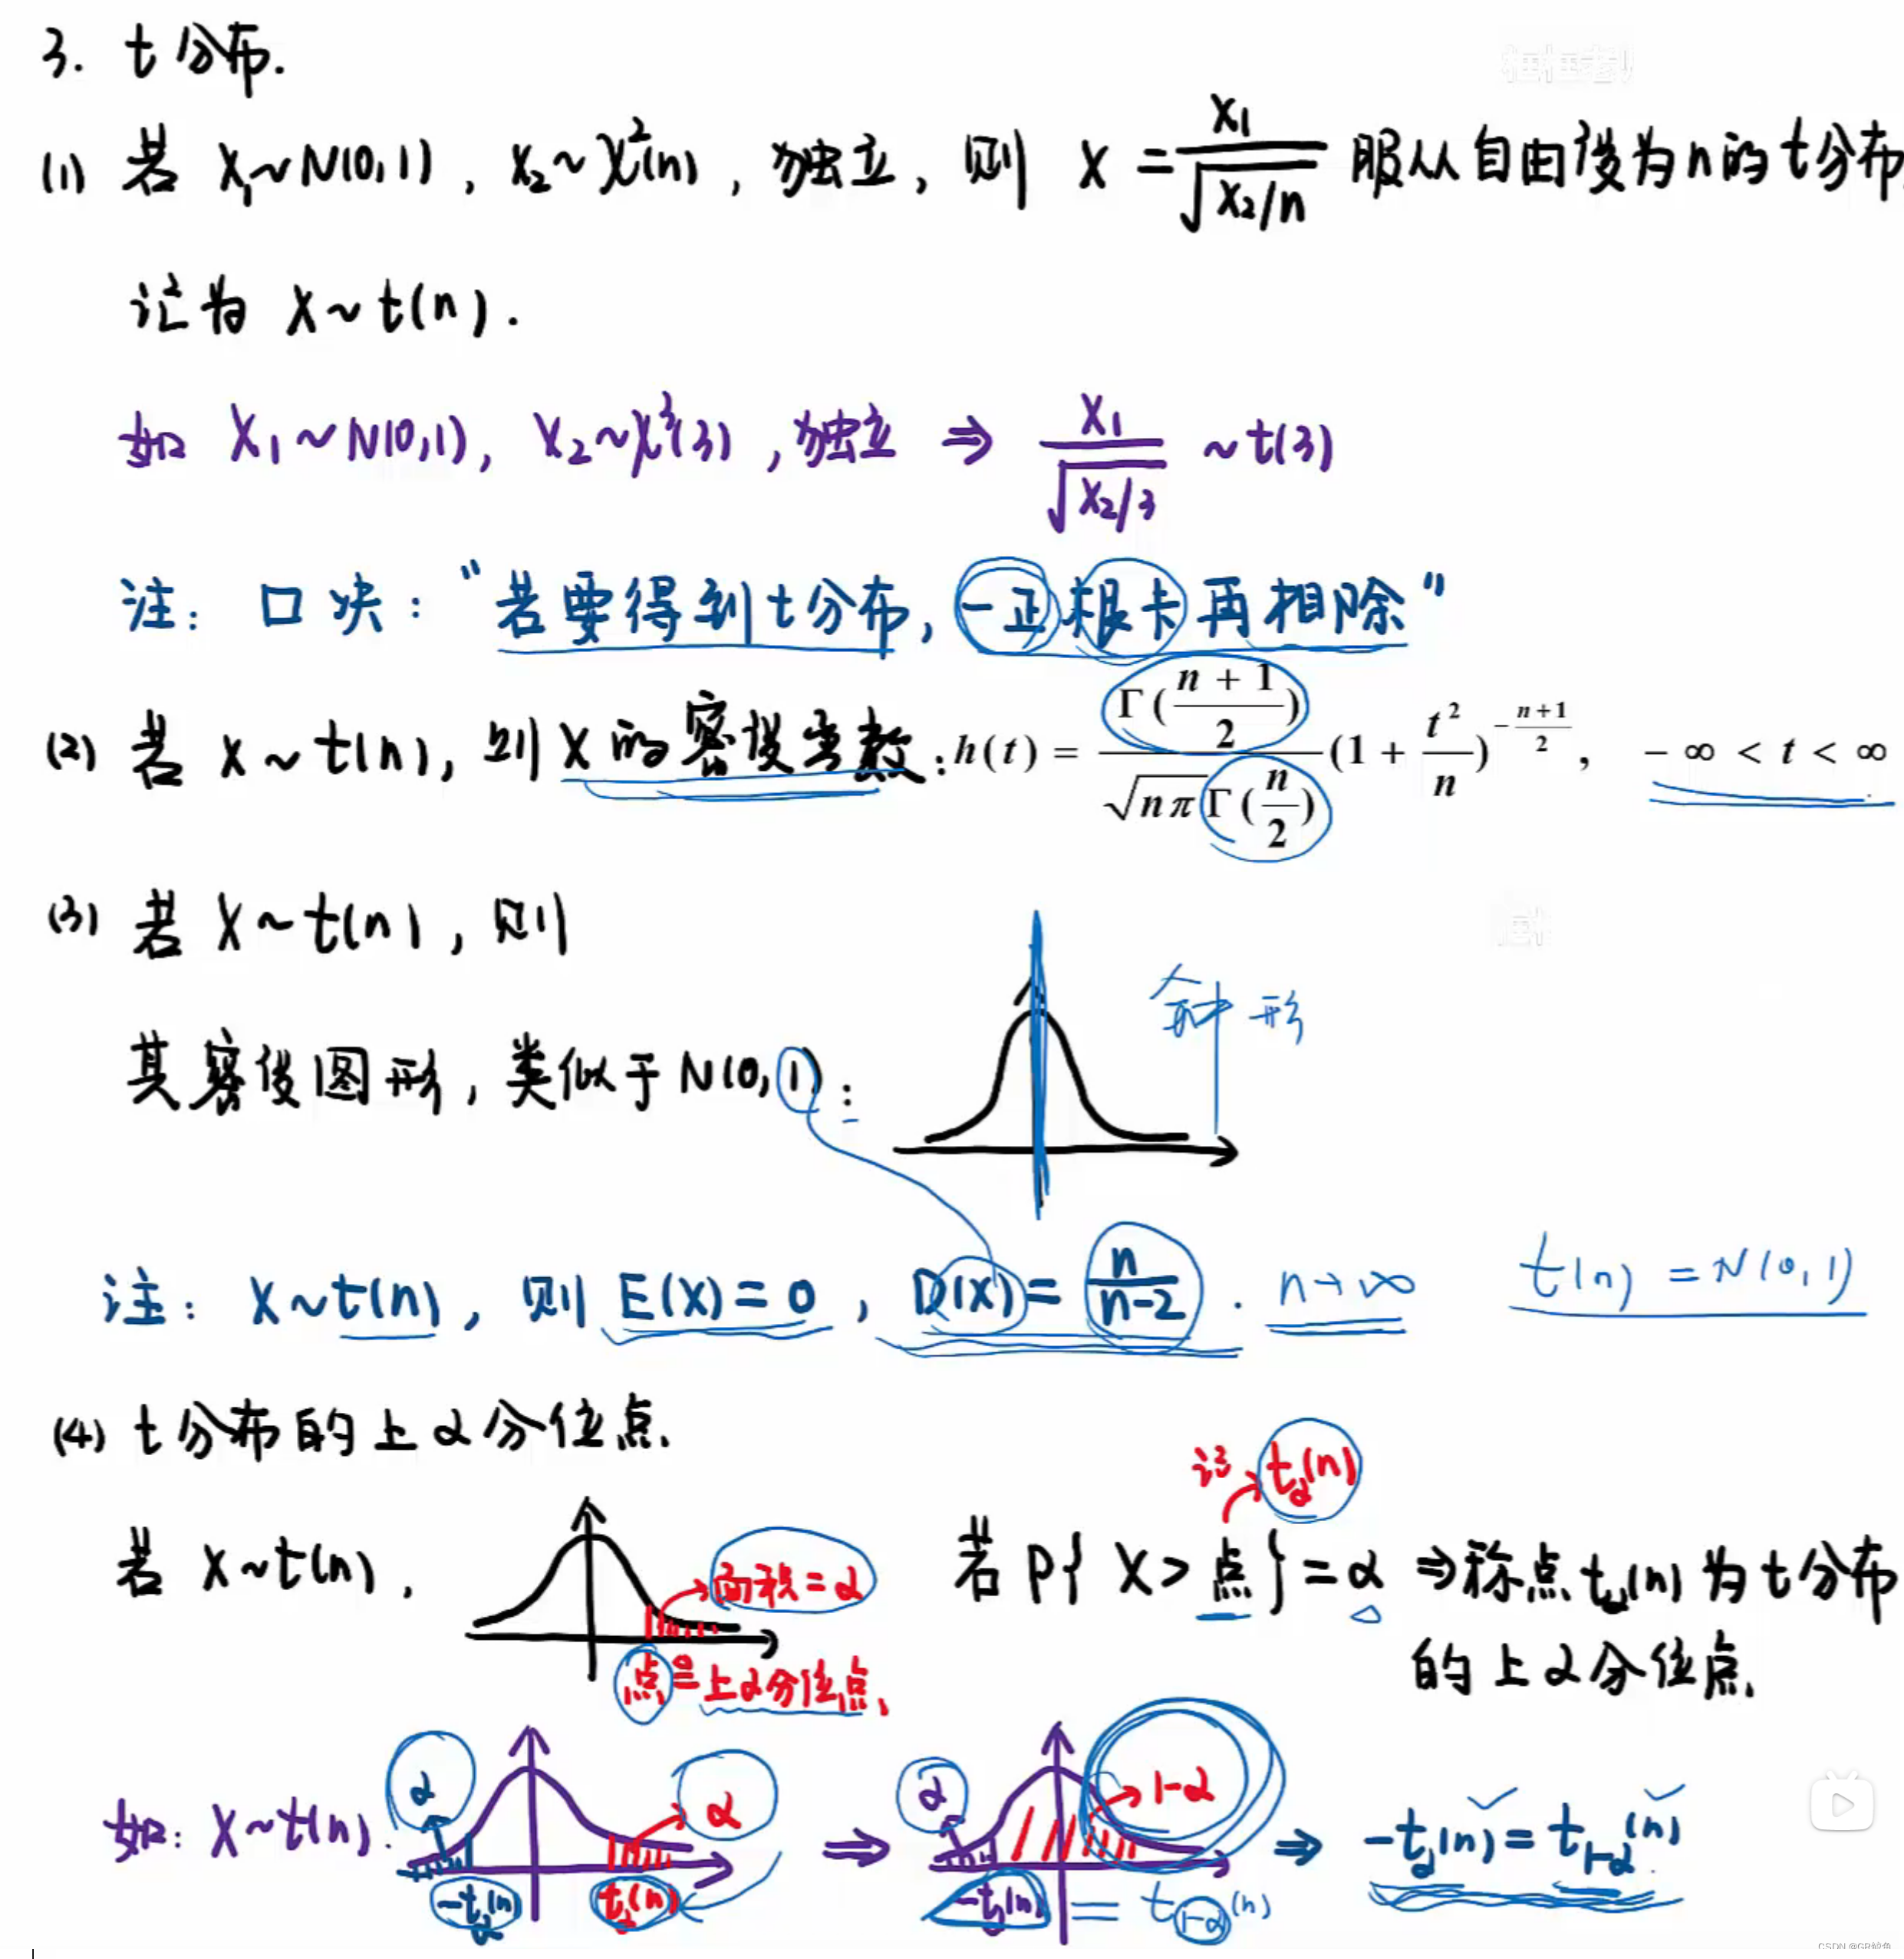 3. t分布.
(1) 若 X₁~N(0,1), X₂~χ²(n), 独立, 则 X = X₁/√(X₂/n) 服从自由度为n的t分布
记为 X~t(n).
如 X₁~N(0,1), X₂~χ²(3), 独立 ⇒ X₁/√(X₂/3) ~t(3)
注: 口决: "若要得到t分布, 一正根卡再相除"
(2) 若 X~t(n), 则X的密度函数: h(t) = Γ((n+1)/2) / (√(nπ) Γ(n/2)) (1 + t²/n)^(-(n+1)/2), -∞ < t < ∞
(3) 若 X~t(n), 则
钟形
其密度图形, 类似于N(0,1):
注: X~t(n), 则 E(X)=0, D(X)= n/(n-2). n→∞ t(n) = N(0,1)
(4) t分布的上α分位点.
记 t_α(n)
若 X~t(n), 面积=α 若 P{X>点}=α ⇒称点t_α(n)为t分布
的上α分位点.
点=上α分位点.
如: X~t(n). α α ⇒ α 1-α ⇒ -t_α(n) = t_{1-α}(n)
-t_α(n) t_α(n) -t_α(n) = t_{1-α}(n)
CSDN @GR鲸鱼